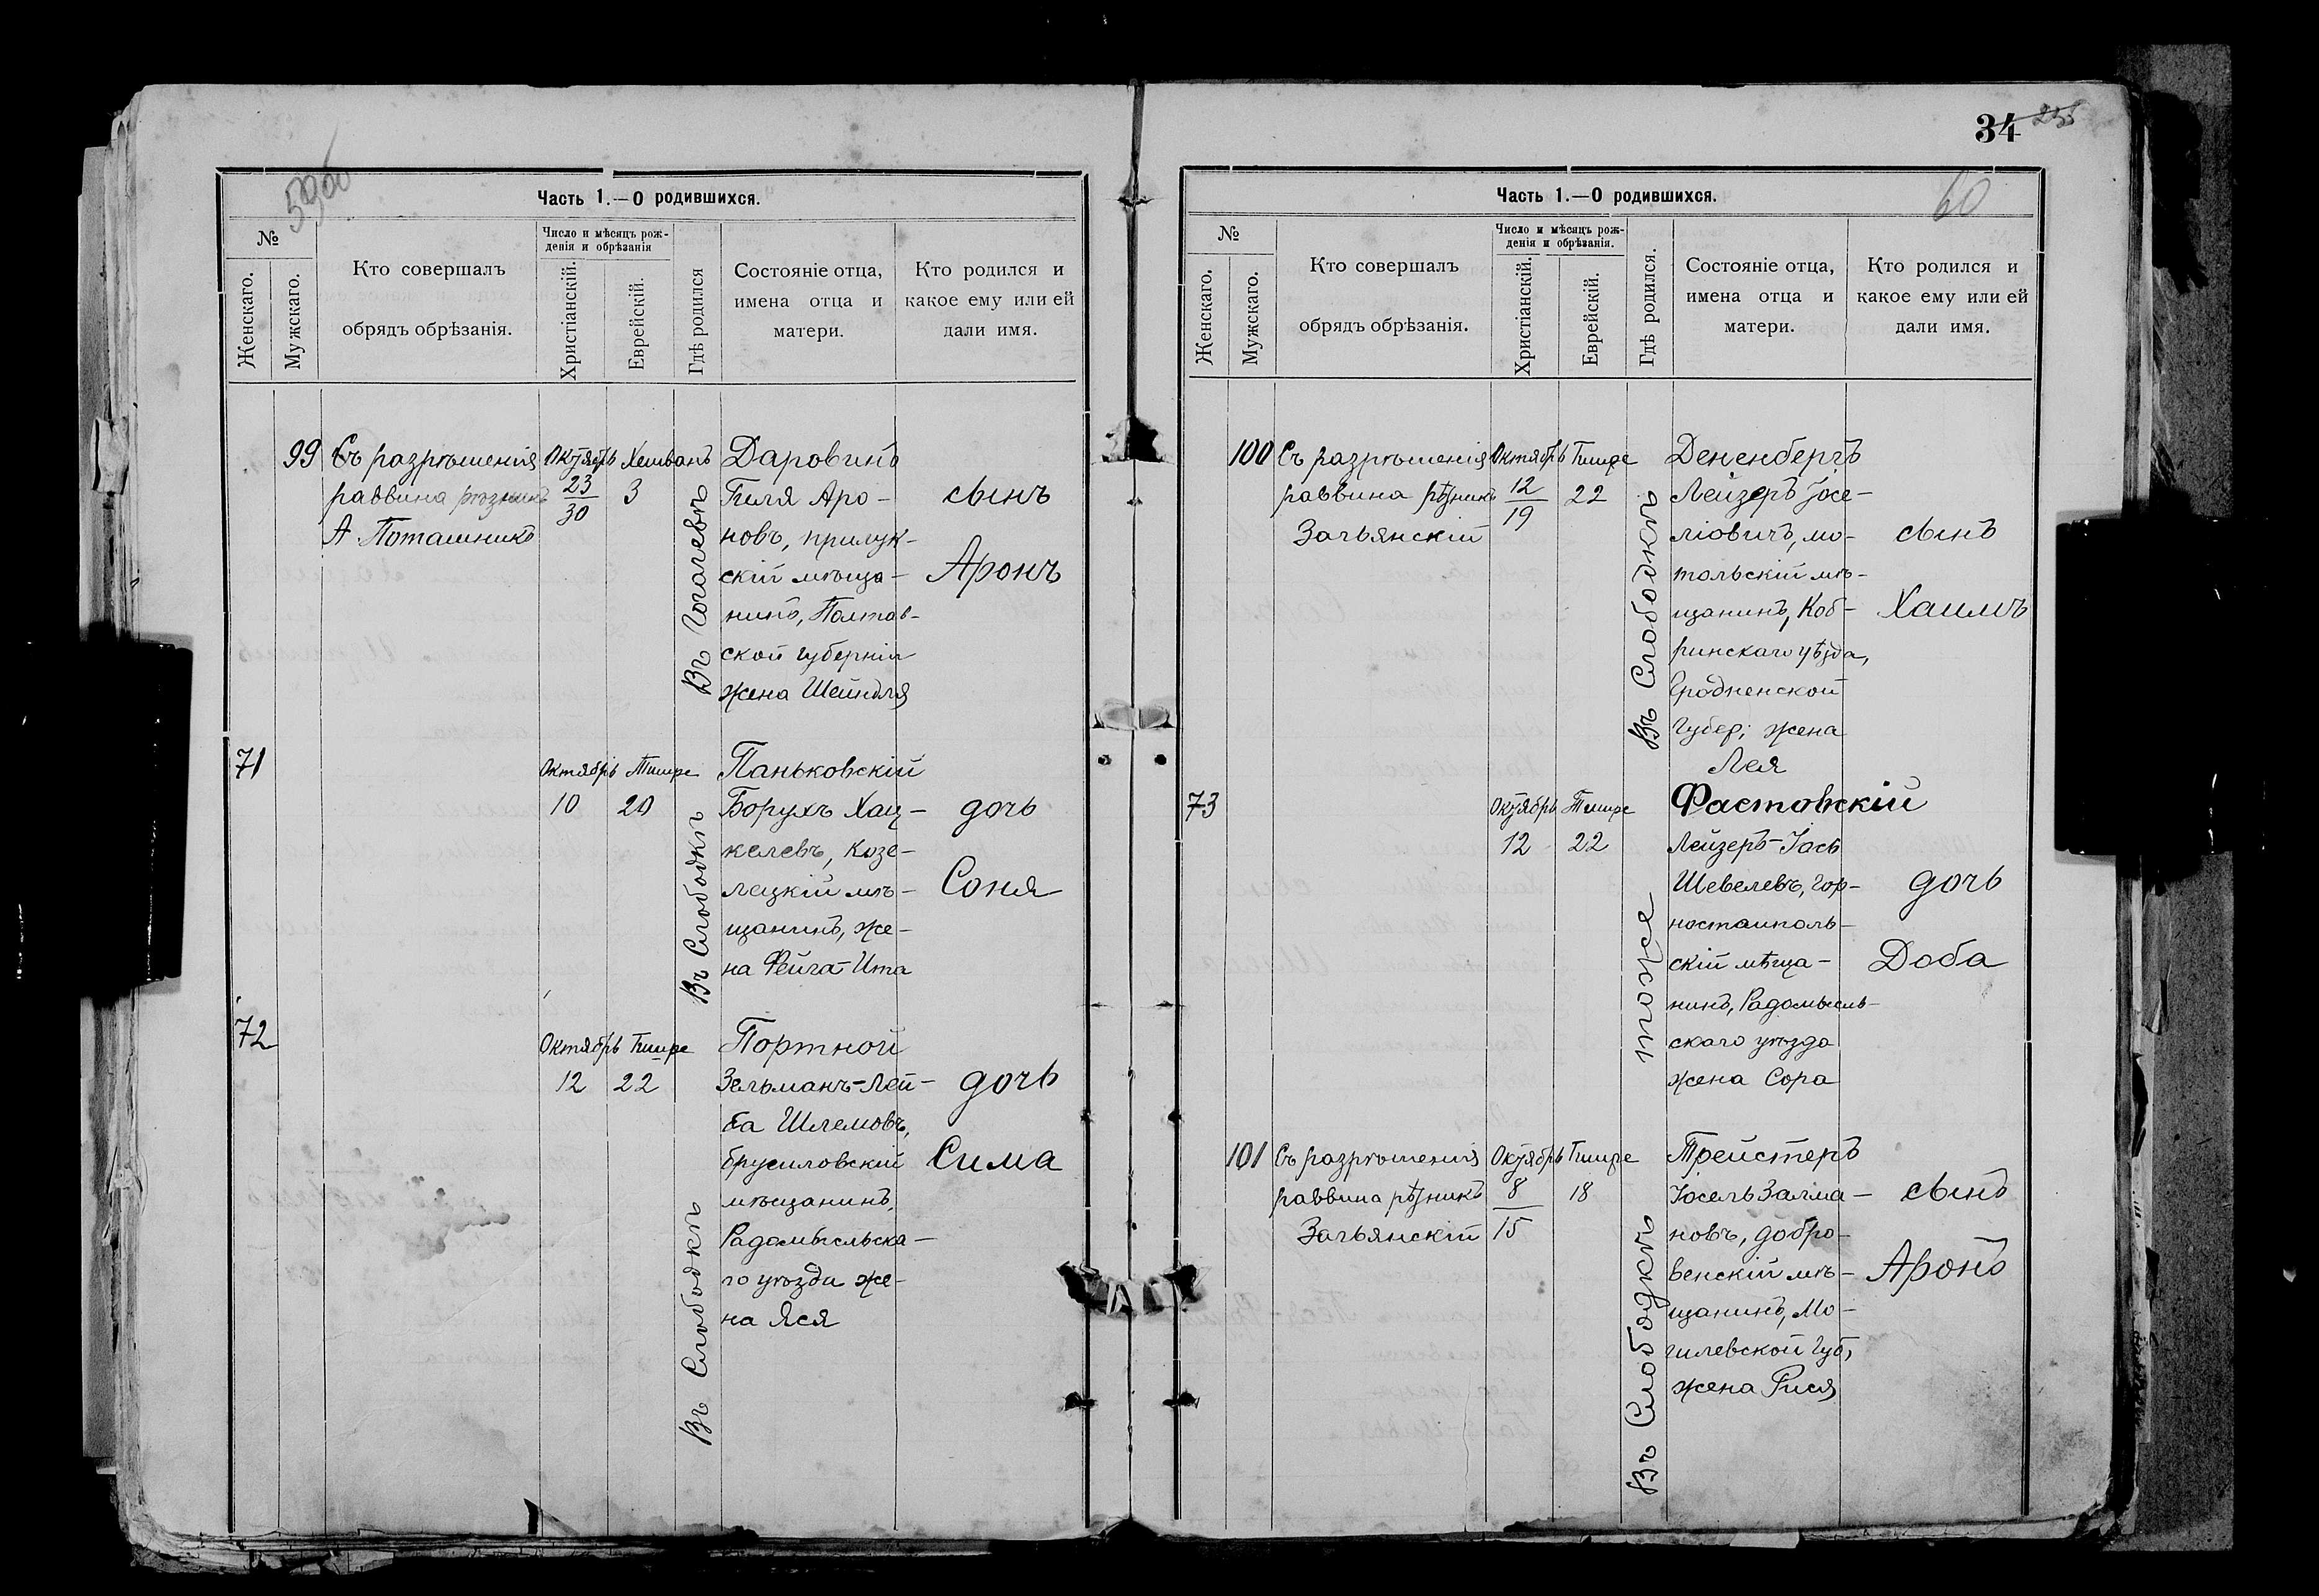 34
60
Часть 1.—О родившихся.
№
Женскаго.
Мужскаго.
Кто совершалъ
обрядъ обрѣзанія.
Число и мѣсяцъ рож-
денія и обрѣзанія
Христіанскій.
Еврейскій.
Гдѣ родился
Состояніе отца,
имена отца и
матери.
Кто родился и
какое ему или ей
дали имя.
99
Съ разрѣшенія
раввина рѣзникъ
А Поташникъ
Октябрь
23
30
Хешванъ
3
Даровинъ
Гиля Аро-
новъ, прилук-
скій мѣща-
нинъ, Полтав-
ской губерніи
жена Шейндля
сынъ
Аронъ
71
Октябрь Тишре
10 20
Въ Слободкѣ
Паньковскій
Борухъ Хац-
келевъ, Козе-
лецкій мѣ-
щанинъ, же-
на Фейга-Ита
дочь
Соня
72
Октябрь Тишре
12 22
Въ Слободкѣ
Портной
Зельманъ-Лей-
ба Шлемовъ,
брусиловскій
мѣщанинъ,
Радомысльска-
го уѣзда же-
на Яся
дочь
Сима
Часть 1.—О родившихся.
№
Женскаго.
Мужскаго.
Кто совершалъ
обрядъ обрѣзанія.
Число и мѣсяцъ рож-
денія и обрѣзанія.
Христіанскій.
Еврейскій.
Гдѣ родился.
Состояніе отца,
имена отца и
матери.
Кто родился и
какое ему или ей
дали имя.
100
Съ разрѣшенія
раввина рѣзникъ
Зачьянскій
Октябрь
12
19
Тишре
22
Въ Слободкѣ
Дененбергъ
Лейзеръ Іосе-
ліовичъ, мо-
тольскій мѣ-
щанинъ, Коб-
ринскаго уѣзда,
Гродненской
Губер; жена
Лея
сынъ
Хаимъ
73
Октябрь Тишре
12 22
тоже
Фастовскій
Лейзеръ-Іось
Шевелевъ, гор-
ностаиполь-
скій мѣща-
нинъ, Радомысль-
скаго уѣзда
жена Сора
дочь
Доба
101
Съ разрѣшенія
раввина рѣзникъ
Зачьянскій
Октябрь
8
15
Тишре
18
Въ Слободкѣ
Трейстеръ
Іосель Залма-
новъ, добро-
венскій мѣ-
щанинъ, Мо-
гилевской Губ,
жена Рися
сынъ
Аронъ